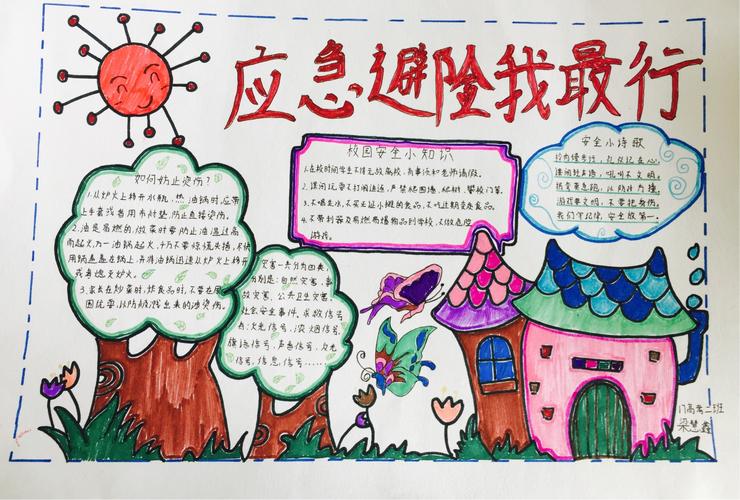 应急避险我最行
校园安全小知识
1.在校时间学生不得无故离校,有事须向老师请假。
2.课间玩耍不打闹追逐,严禁爬围墙、爬树、攀校门等。
3.不喝生水,不买无证小摊的食品,不吃过期变质食品。
4.不带利器及易燃易爆物品到学校,不做危险
游戏。
安全小诗歌
校内慢步行,礼仪记在心。
课间轻声语,吼叫不文明。
拐弯莫急跑,以防体力撞。
游戏要文明,不要把身伤。
我们牢记住,安全放第一。
如何防止烫伤?
1.从炉火上移开水瓶,热油锅时,应带
上手套或者用布衬垫,防止直接烫伤。
2.油是易燃的,做菜时要防止油温过高
而起火,万一油锅起火,千万不要惊慌失措,不使
用锅盖盖在锅上,并将油锅迅速从炉火上移开
或者熄灭炉火。
3.家长在炒菜时,炸食品时,不要在周
围玩耍,以防被溅出来的油烫伤。
灾害一共分为四类,
分别是:自然灾害、事
故灾害、公共卫生灾害、
社会安全事件。求救信号
火光信号,浓烟信号,
旗语信号,声音信号,反光
信号,信息信号......
17高考二班
梁慧鑫